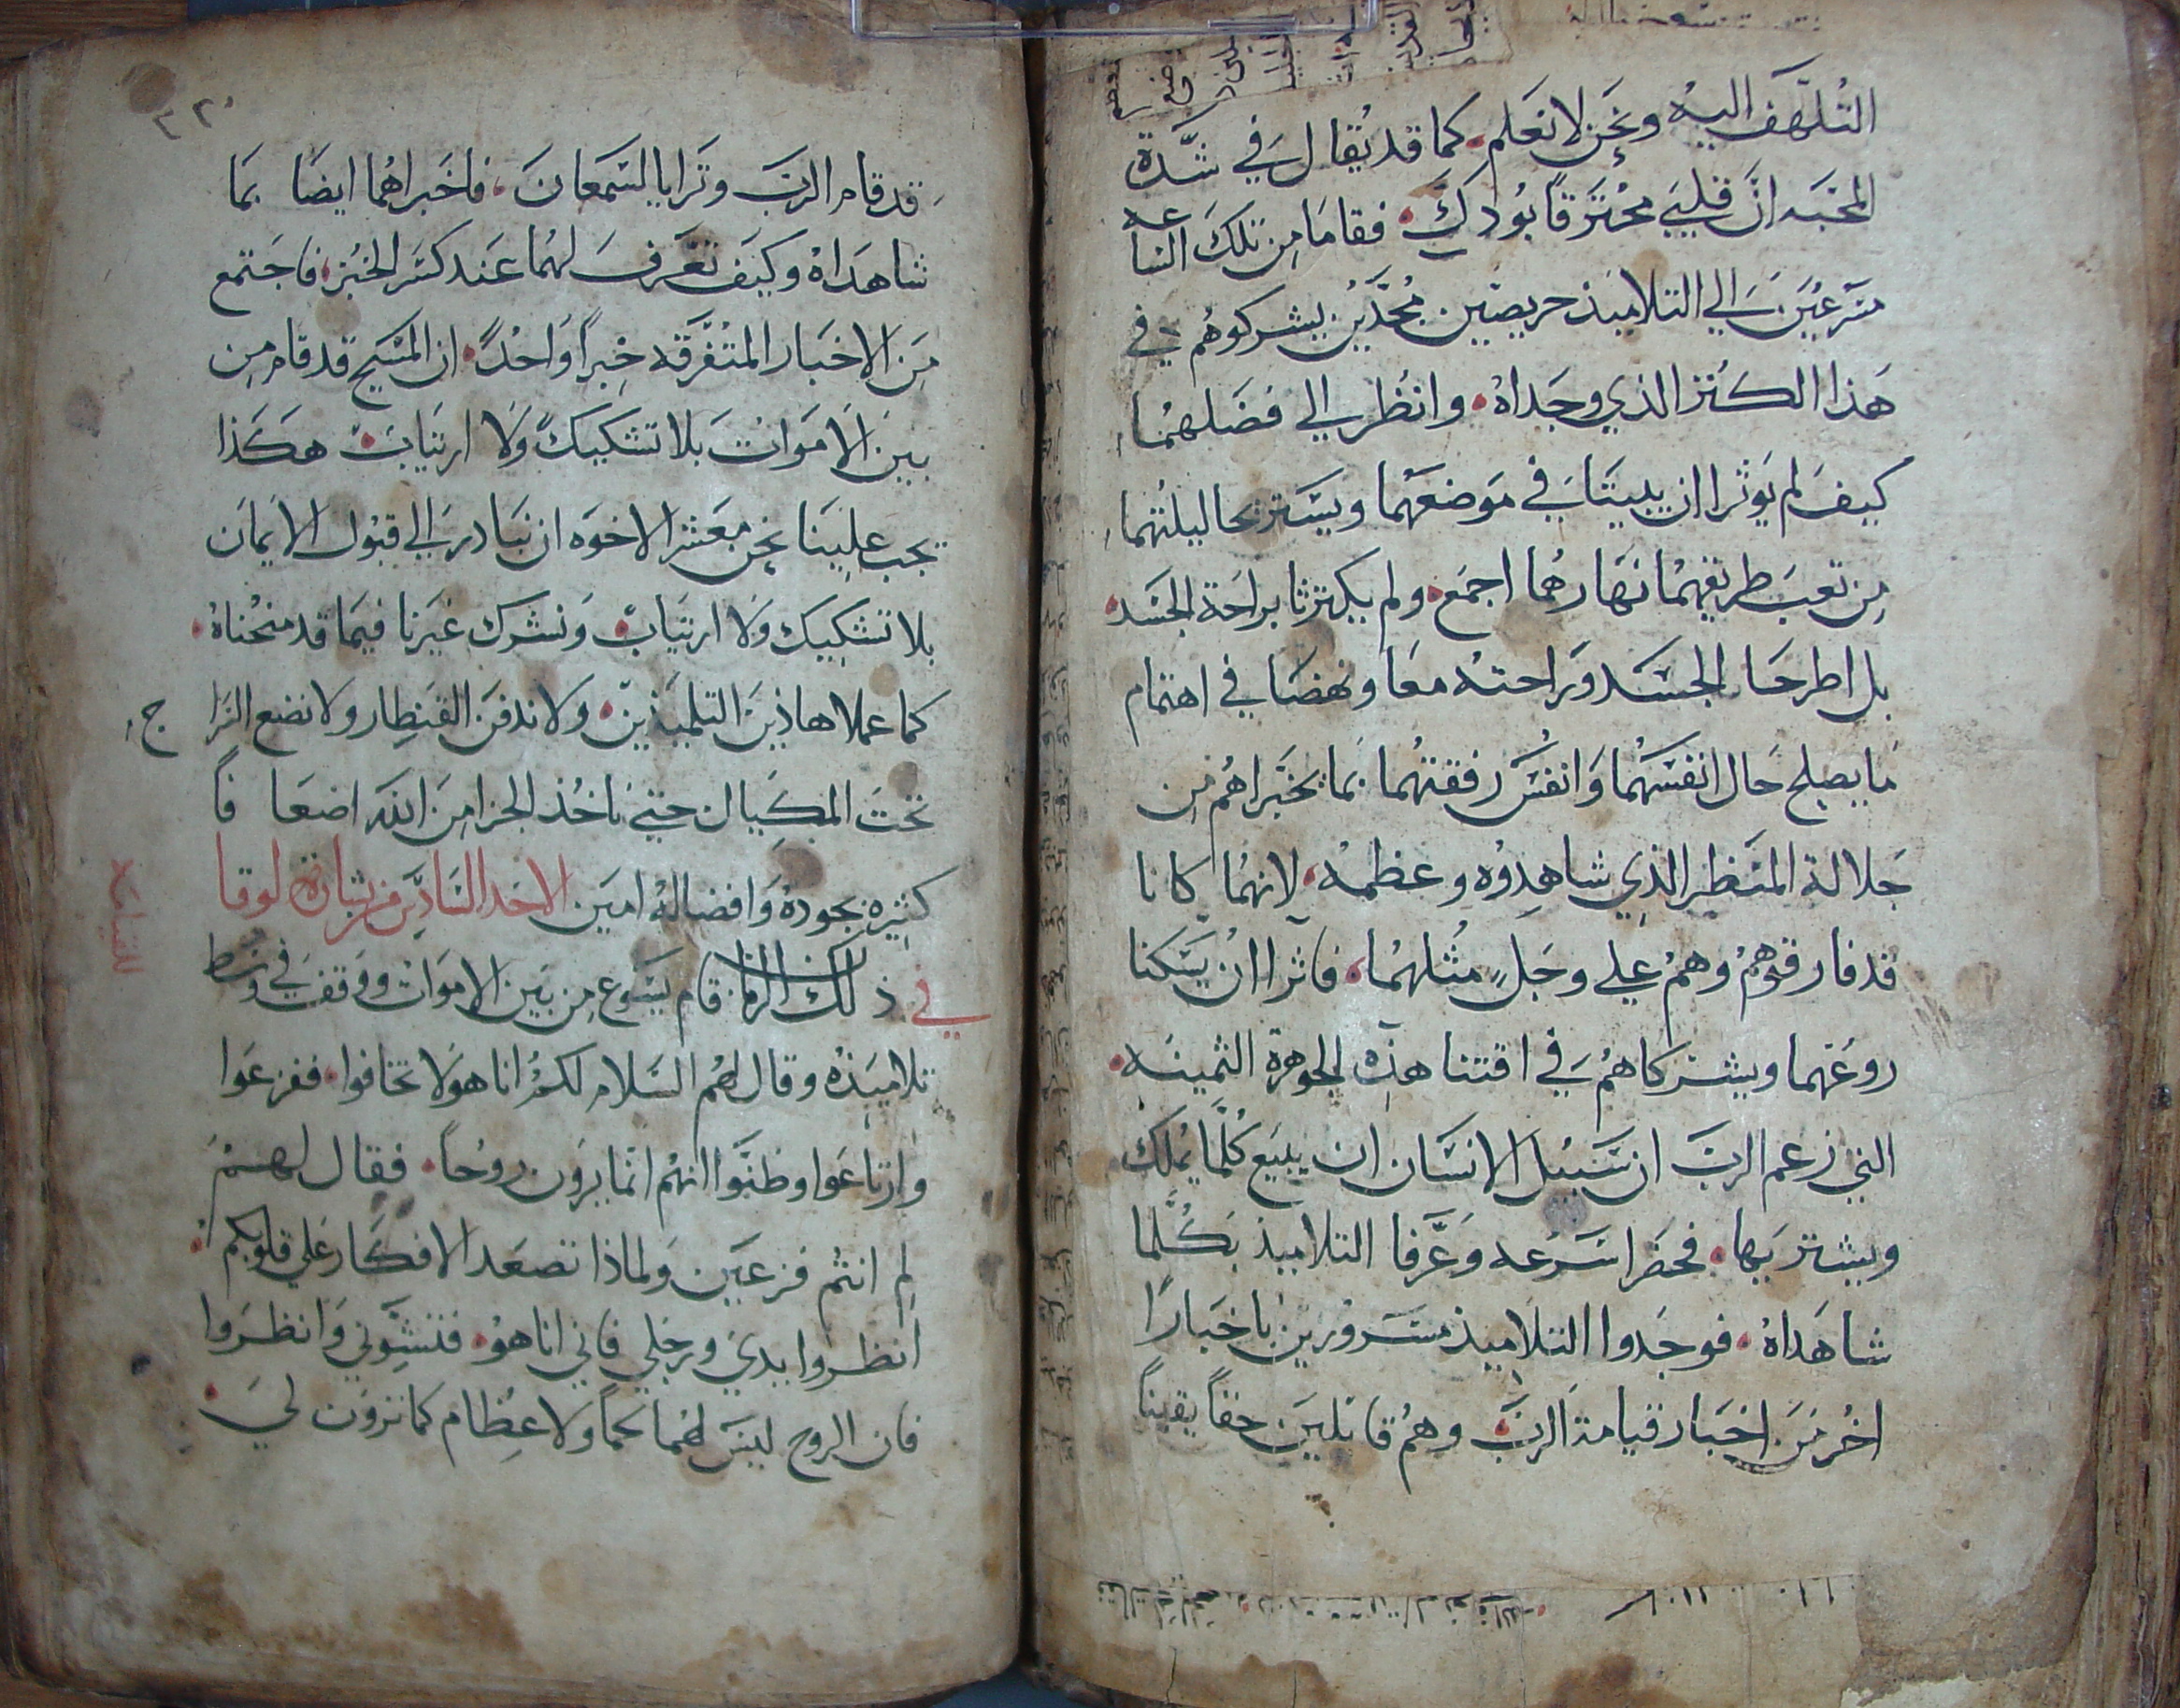 التلهف اليه ونحن لا نعلم. كما قد يقال في شدة
المحبه ان قلبي محترقا بودك. فقاما من تلك الساعه
مسرعين الي التلاميذ حريصين مجدين يشركوهم في
هذا الكنز الذي وجداه. وانظر الي فضلهما
كيف لم يوثرا ان يبيتا في موضعهما ويستريحا ليلتهما
من تعب طريقهما نهارهما اجمع. ولم يكترثا براحة الجسد.
بل اطرحا الجسد وراحته معا ونهضا في اهتمام
ما يصلح حال انفسهما وانفس رفقتهما بما يخبراهم من
جلالة المنظر الذي شاهدوه وعظمه. لانهما كانا
قد فارقوهم وهم علي وجل مثلهما. فاثرا ان يسكنا
روعهما ويشركاهم في اقتنا هذه الجوهرة الثمينه.
التي زعم الرب ان سبيل الانسان ان يبيع كلما يملك
ويشتريها. فحضرا سرعه وعرفا التلاميذ بكلما
شاهداه. فوجدوا التلاميذ مسرورين باخبارا
اخر من اخبار قيامة الرب. وهم قايلين حقا يقينا
٢٢
قد قام الرب وترايا لسمعان. فاخبراهما ايضا بما
شاهداه وكيف تعرف لهما عند كسر الخبز. فاجتمع
من الاخبار المتفرقه خبرا واحد. ان المسيح قد قام من
بين الاموات بلا تشكيك ولا ارتياب. هكذا
يجب علينا نحن معشر الاخوه ان نبادر الي قبول الايمان
بلا تشكيك ولا ارتياب. ونشرك غيرنا فيما قد منحناه.
كما عملا هاذين التلميذين. ولا ندفن القنطار ولا نضع السرا ج
تحت المكيال حتي ناخذ الجزا من الله اضعا فا
كثيره بجوده وافضاله امين الاحد السادس من بشارة لوقا
في ذلك الزمان قام يسوع من بين الاموات ووقف في وسط
تلاميذه وقال لهم السلام لكم انا هو لا تخافوا. ففزعوا
وارتاعوا وظنوا انهم انما يرون روحا. فقال لهم
لم انتم فزعين ولماذا تصعد الافكار علي قلوبكم.
انظروا يدي ورجلي فاني انا هو. فتشوني وانظروا
فان الروح ليس لهما لحما ولا عظام كما ترون لي.